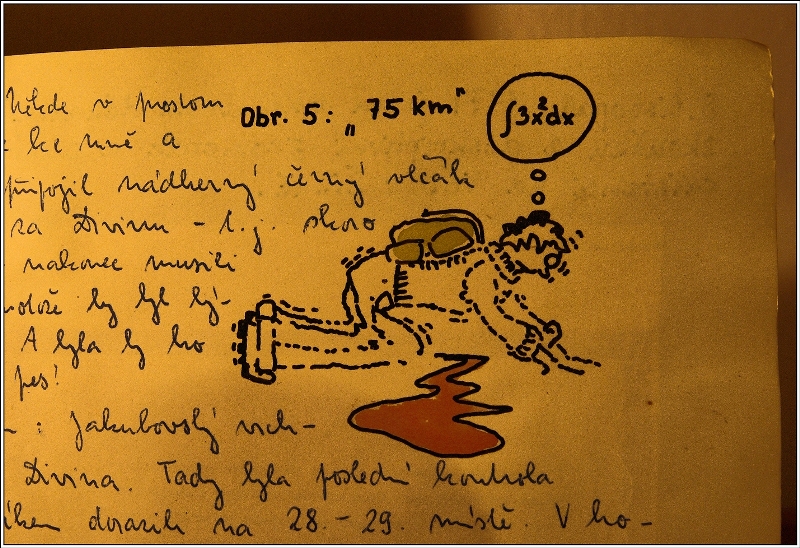 Někde v prostom
Obr. 5: „75 km"
∫3x²dx
ke mně a
připojil nádherný černý vlčák
za Divinu - t.j. skoro
nakonec musili
by byl bý-
A byla by ho
pes!
: Jakubovský vrch-
Divina. Tady byla poslední kontrola
dorazili na 28.-29. místě. V ho-